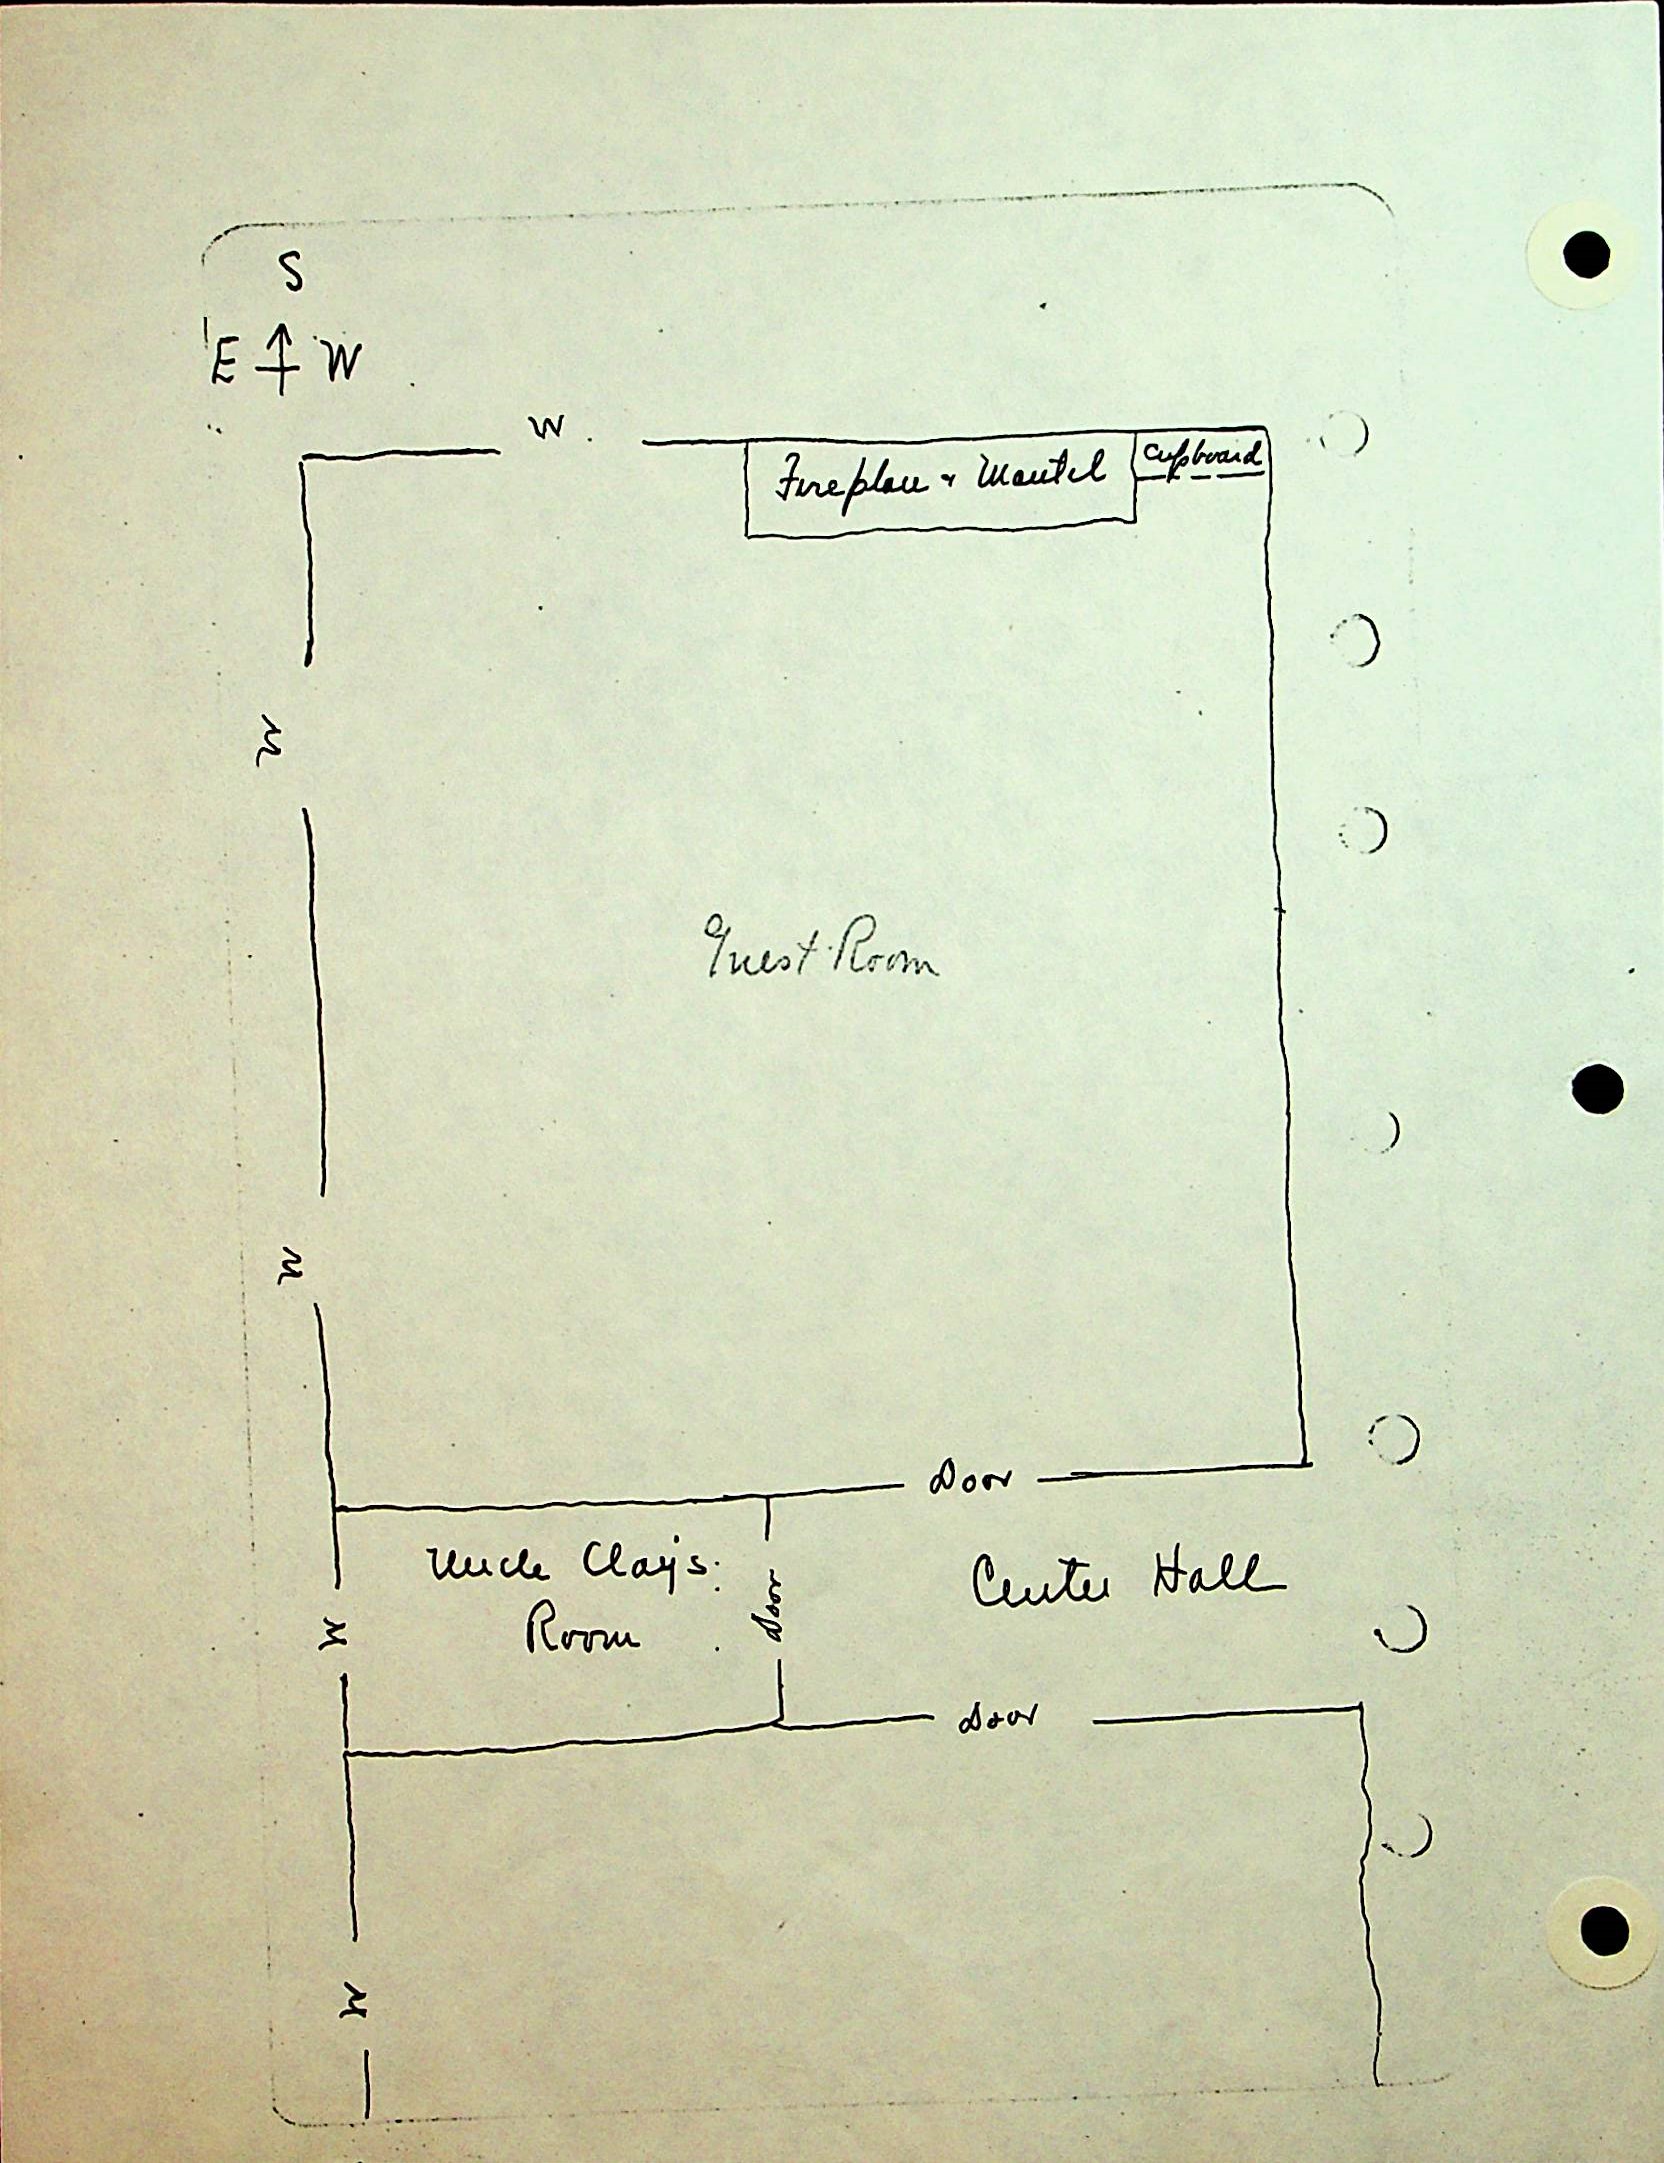 S
E W
W.
Fireplace & Mantel
Cupboard
W
Guest Room
W
Door
Uncle Clay's
Room
Door
Center Hall
W
Door
W